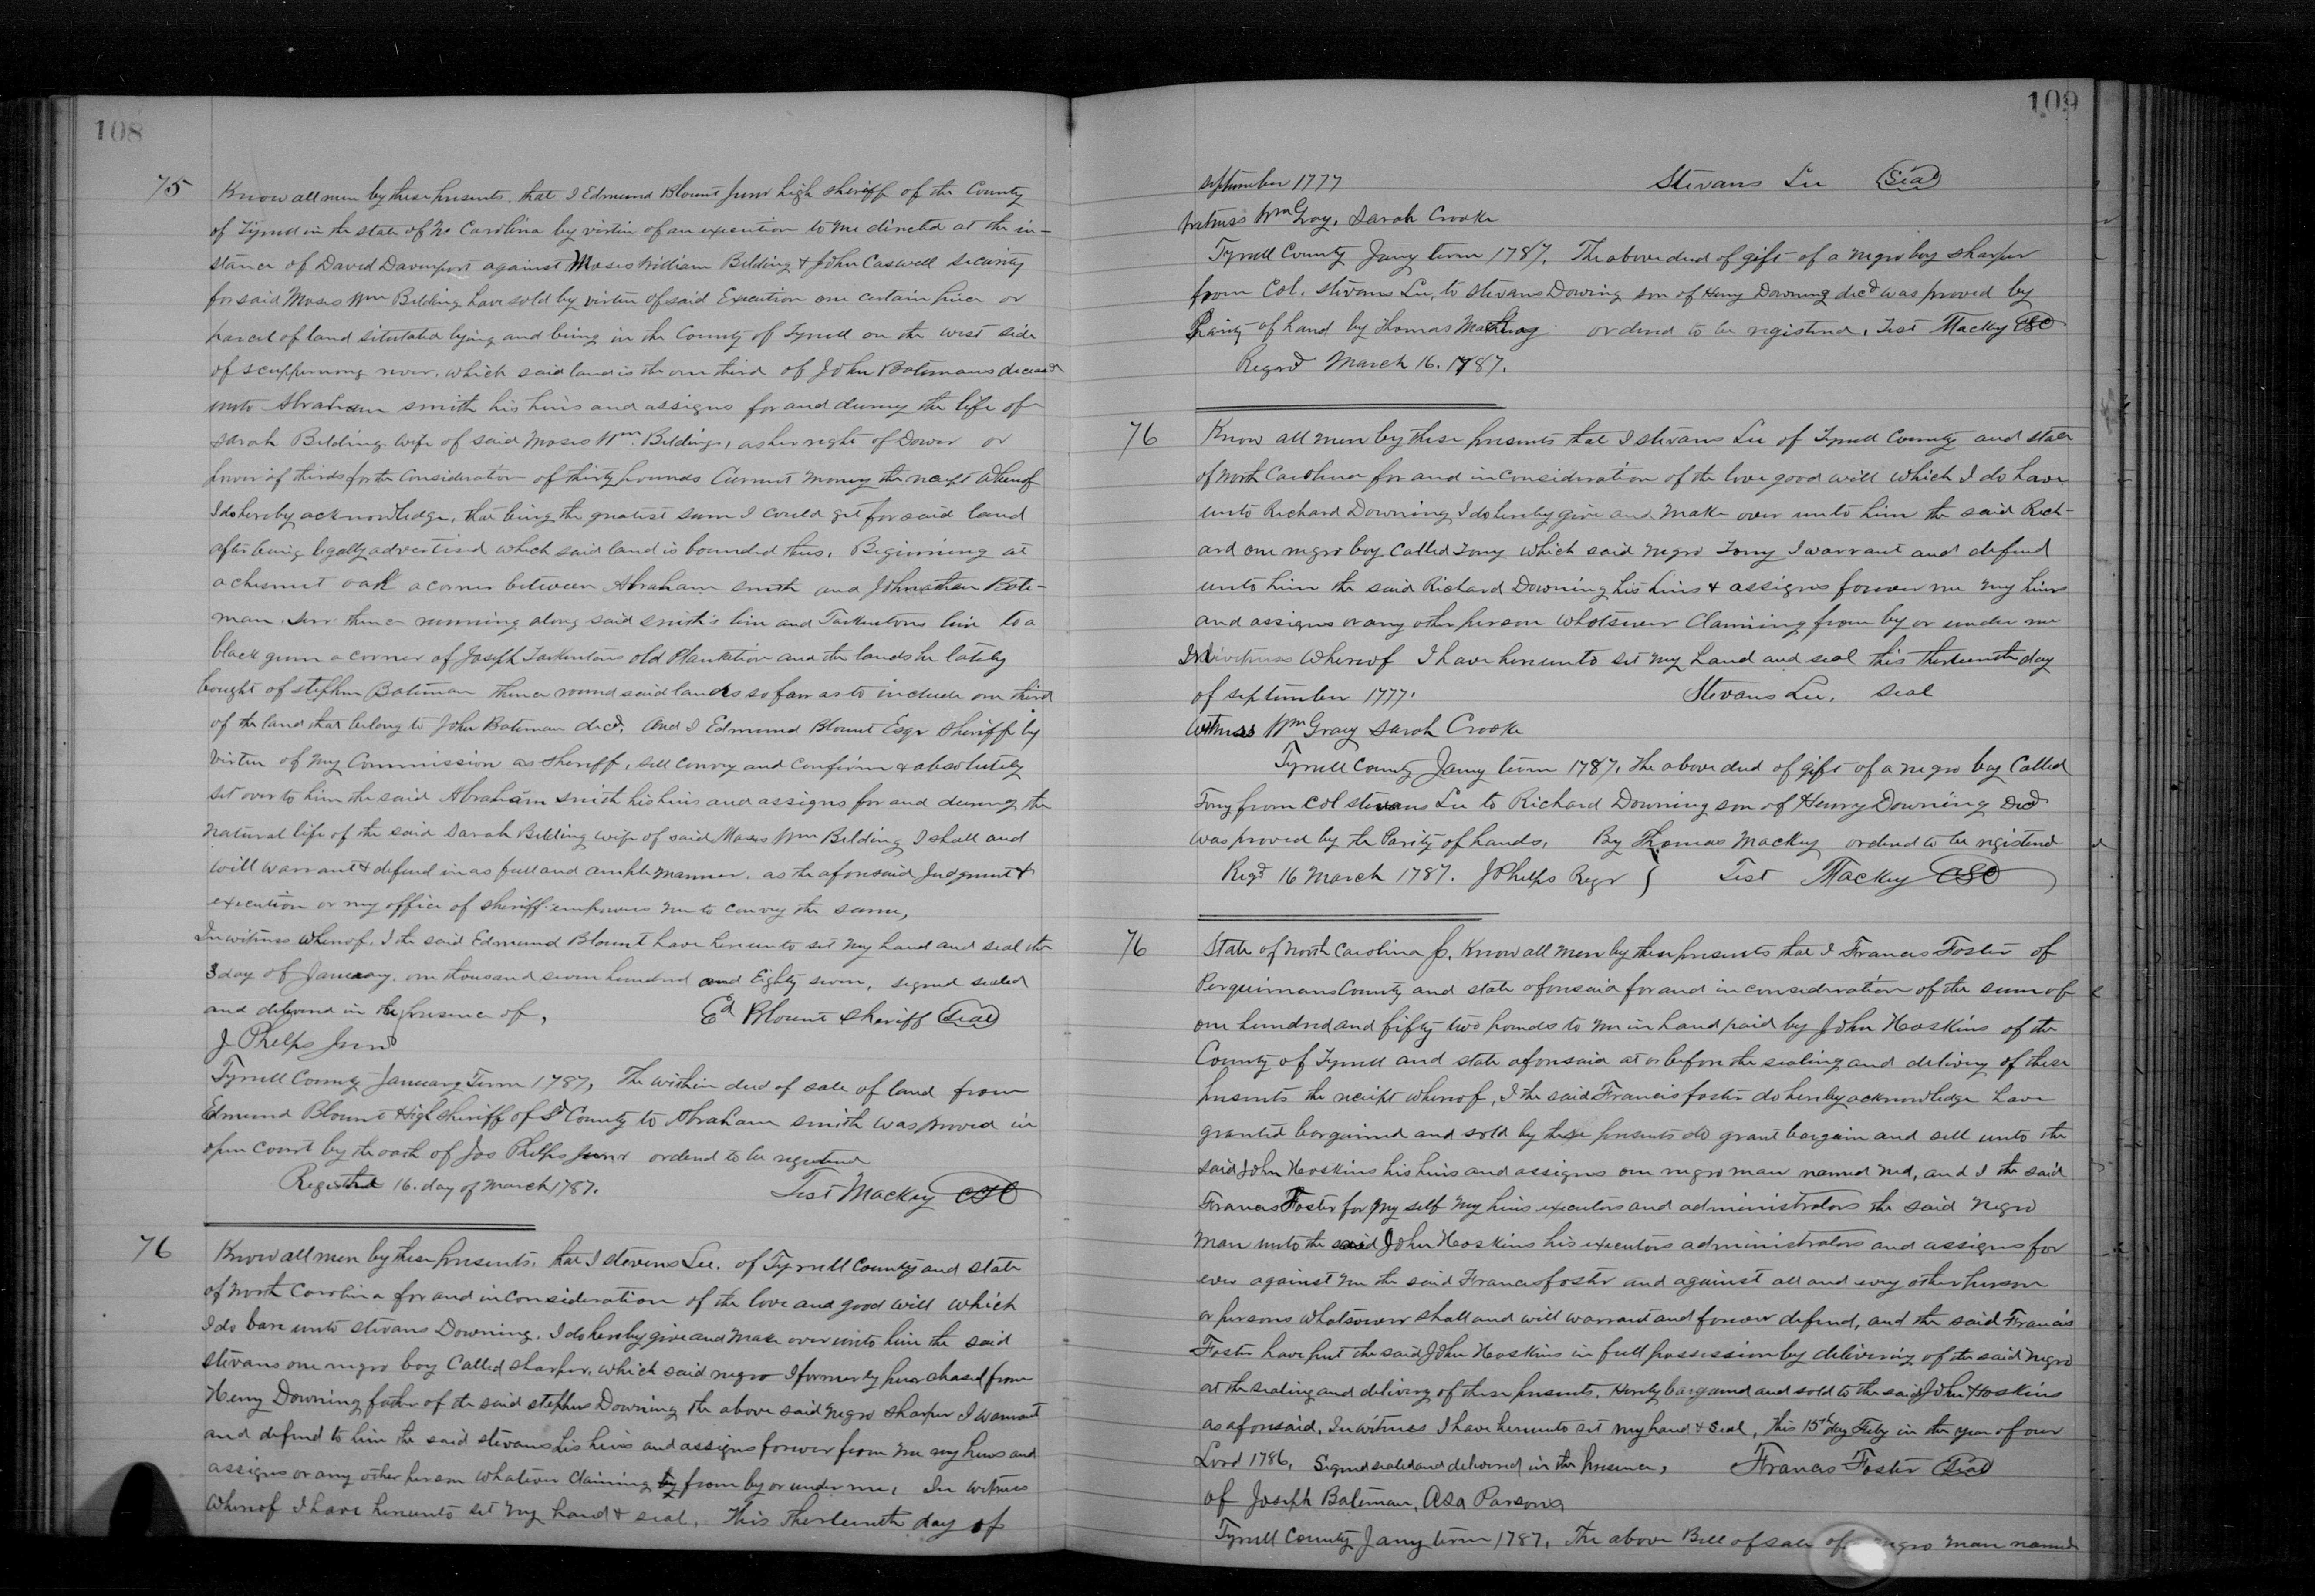 108
75 Know all men by these presents. that I Edmund Blount Junr high sheriff of the County
of Tyrrell in the state of No Carolina by virtue of an execution to me directed at the in-
stance of David Davenport against Moses William Belding & John Caswell security
for said Moses Wm Belding have sold by virtue of said Execution one certain piece or
parcel of land situated lying and being in the County of Tyrrell on the west side
of scuppernong river. which said land is the one third of John Batemans deceasd
unto Abraham smith his heirs and assigns for and during the life of
sarah Belding wife of said Moses Wm. Beldings, as her right of Dower or
power of thirds for the Consideration of thirty pounds Current money the receipt whereof
I do hereby acknowledge, that being the greatest sum I could get for said land
after being legally advertised which said land is bounded thus, Beginning at
a chesnut oak a corner between Abraham smith and Johnathan Bate-
man. Senr thence running along said smith's line and Tarkentons line to a
black gum a corner of Joseph Tarkentons old Plantation and the lands he lately
bought of stephen Bateman thence round said lands so far as to include one third
of the land that belong to John Bateman decd. And I Edmund Blount Esqr Sheriff by
virtue of my Commission as Sheriff, sell convey and confirm & absolutely
set over to him the said Abraham smith his heirs and assigns for and during the
natural life of the said Sarah Belding wife of said Moses Wm Belding I shall and
will warrant & defend in as full and ample manner. as the aforesaid Judgment &
execution or my office of sheriff empowers me to convey the same,
In witness whereof. I the said Edmund Blount have hereunto set my hand and seal the
3 day of January. one thousand seven hundred and Eighty seven, signed sealed
and delivered in the presence of, Ed Blount Sheriff Seal
J Phelps Junr
Tyrrell County January Term 1787, The within deed of sale of land from
Edmund Blount High sheriff of Sd County to Abraham smith was proved in
open court by the oath of Jos Phelps Junr ordered to be registered
Registed 16. day of March 1787. Test Mackey CSC
76 Know all men by these presents. that I stevens Lee. of Tyrrell County and state
of North Carolina for and in consideration of the love and good will which
I do bare unto stevans Downing. I do hereby give and make over unto him the said
stevans one negro boy Called sharper. which said negro I formerly purchased from
Henry Downing father of the said stephens Downing the above said negro sharper I warrant
and defend to him the said stevans his heirs and assigns forever from me my heirs and
assigns or any other person whatever claiming by from by or under me, In witness
whereof I have hereunto set my hand & seal. This Thirteenth day of
109
september 1777 Stevans Lee Seal
witness Wm Gray, Sarah Crooke
Tyrrell County Jany term 1787. The above deed of gift of a negro boy sharper
from Col. stevans Lee, to stevans Dowing son of Heny Downing decd was proved by
Parity of hand by Thomas Mackey ordered to be registered, Test Mackey CSC
Regord March 16. 1787.
76 Know all men by these presents that I stevans Lee of Tyrrell County and state
of North Carolina for and in consideration of the love good will which I do have
unto Richard Downing I do hereby give and make over unto him the said Rich-
ard one negro boy called Tony which said negro Tony I warrant and defend
unto him the said Richard Downing his heirs & assigns forever me my heirs
and assigns or any other person whatsoever Claiming from by or under me
In witness whereof I have hereunto set my hand and seal this thirteenth day
of september 1777. Stevans Lee, Seal
Witness Wm Gray Sarah Crooke
Tyrrell County Jany term 1787. The above deed of gift of a negro boy Called
Tony from Col stevans Lee to Richard Downing son of Henry Downing Decd
was proved by the Parity of hands, By Thomas Mackey ordered to be registered
Regd 16 March 1787. J Phelps Regr } Test Mackey CSC
76 State of North Carolina fs. Know all men by these presents that I Francis Foster of
Perquimans County and state aforesaid for and in consideration of the sum of
one hundred and fifty two pounds to me in hand paid by John Hoskins of the
County of Tyrrell and state aforesaid at or before the sealing and delivery of these
presents the receipt whereof, I the said Francis foster do hereby acknowledge have
granted bargained and sold by these presents do grant bargain and sell unto the
said John Hoskins his heirs and assigns one negro man named Ned, and I the said
Francis Foster for my self my heirs executors and administrators the said Negro
man unto the said John Hoskins his executors administrators and assigns for
ever against me the said Francis foster and against all and every other person
or persons whatsoever shall and will warrant and forever defend, and the said Francis
Foster have put the said John Hoskins in full possession by delivering of the said negro
at the sealing and delivery of these presents. Hereby bargained and sold to the said John Hoskins
as aforesaid, In witness I have hereunto set my hand & Seal, this 15th day Feby in the year of our
Lord 1786, Signed sealed and delivered in the presence, Francis Foster Seal
of Joseph Bateman, Asa Parsons
Tyrrell County Jany term 1787, The above Bill of sale of negro man named